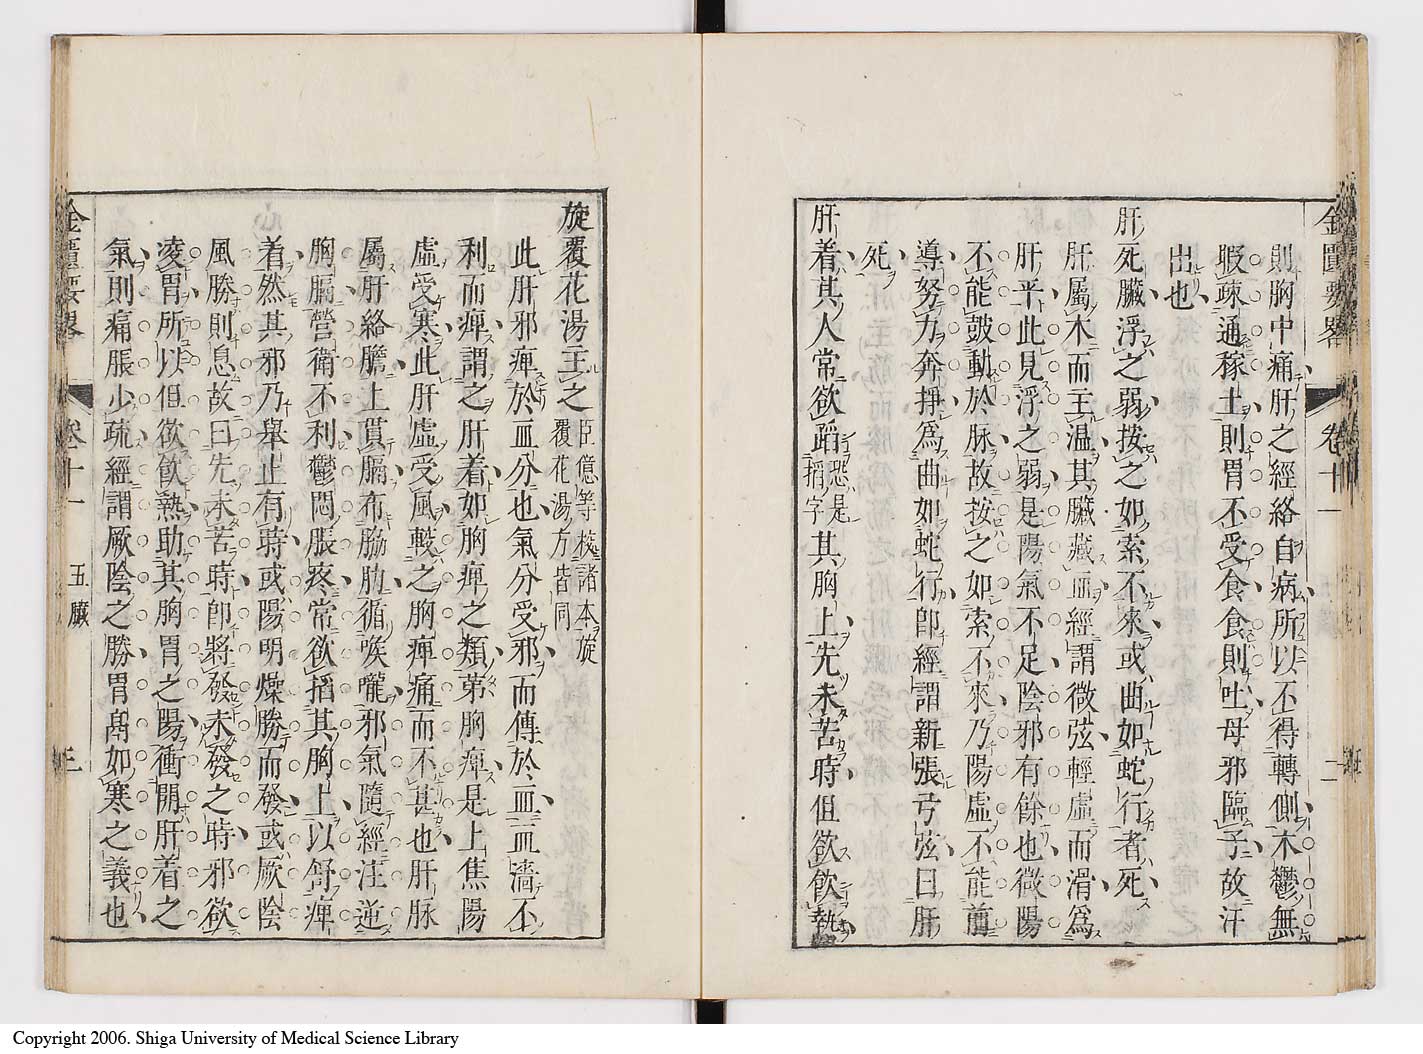 金匱要畧 卷十一 二
則胸中痛肝之經絡自病所以不得轉側木鬱無
暇疎通稼土則胃不受食食則吐母邪臨子故汗
出也
肝死臟浮之弱按之如索不來或曲如蛇行者死
肝屬木而王温其臟藏血經謂微弦輕虛而滑為
肝平此見浮之弱是陽氣不足陰邪有餘也微陽
不能鼓動於脉故按之如索不來乃陽虛不能前
導努力奔掙為曲如蛇行卽經謂新張弓弦曰肝
死
肝着其人常欲蹈恐是搯字其胸上先未苦時但欲飲熱
旋覆花湯主之臣億等校諸本旋覆花湯方皆同
此肝邪痺於血分也氣分受邪而傳於血血濇不
利而痺謂之肝着如胸痺之類苐胸痺是上焦陽
虛受寒此肝虛受風較之胸痺痛而不甚也肝脉
屬肝絡膽上貫膈布脇肋循喉嚨邪氣隨經注逆
胸膈營衛不利鬱悶脹疼常欲搯其胸上以舒痺
着然其邪乃舉止有時或陽明燥勝而發或厥陰
風勝則息故曰先未苦時卽將發未發之時邪欲
凌胃所以但欲飲熱助其胸胃之陽衝開肝着之
氣則痛脹少疏經謂厥陰之勝胃鬲如寒之義也
金匱要畧 卷十一 五臟 三
Copyright 2006. Shiga University of Medical Science Library